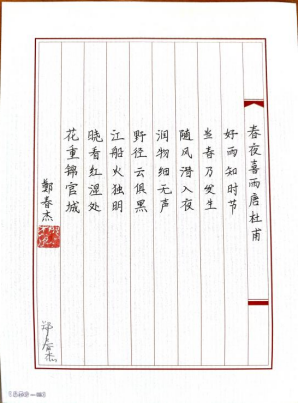 春夜喜雨唐杜甫
好雨知时节
当春乃发生
随风潜入夜
润物细无声
野径云俱黑
江船火独明
晓看红湿处
花重锦官城
鄭春杰